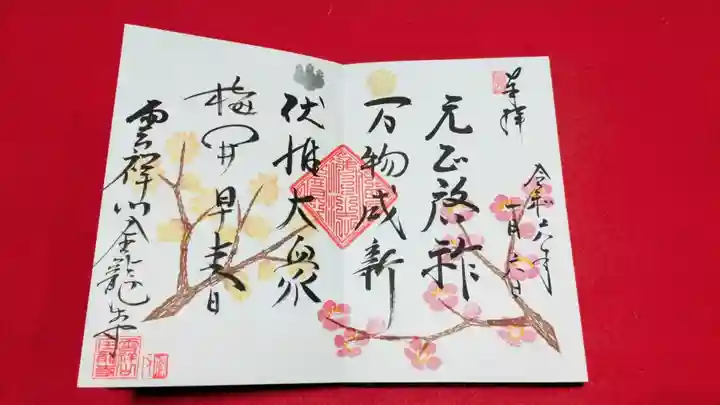 奉拝
令和六年
一月六日
元正啓祚
万物咸新
伏惟大衆
梅開早春
雲祥山金龍寺